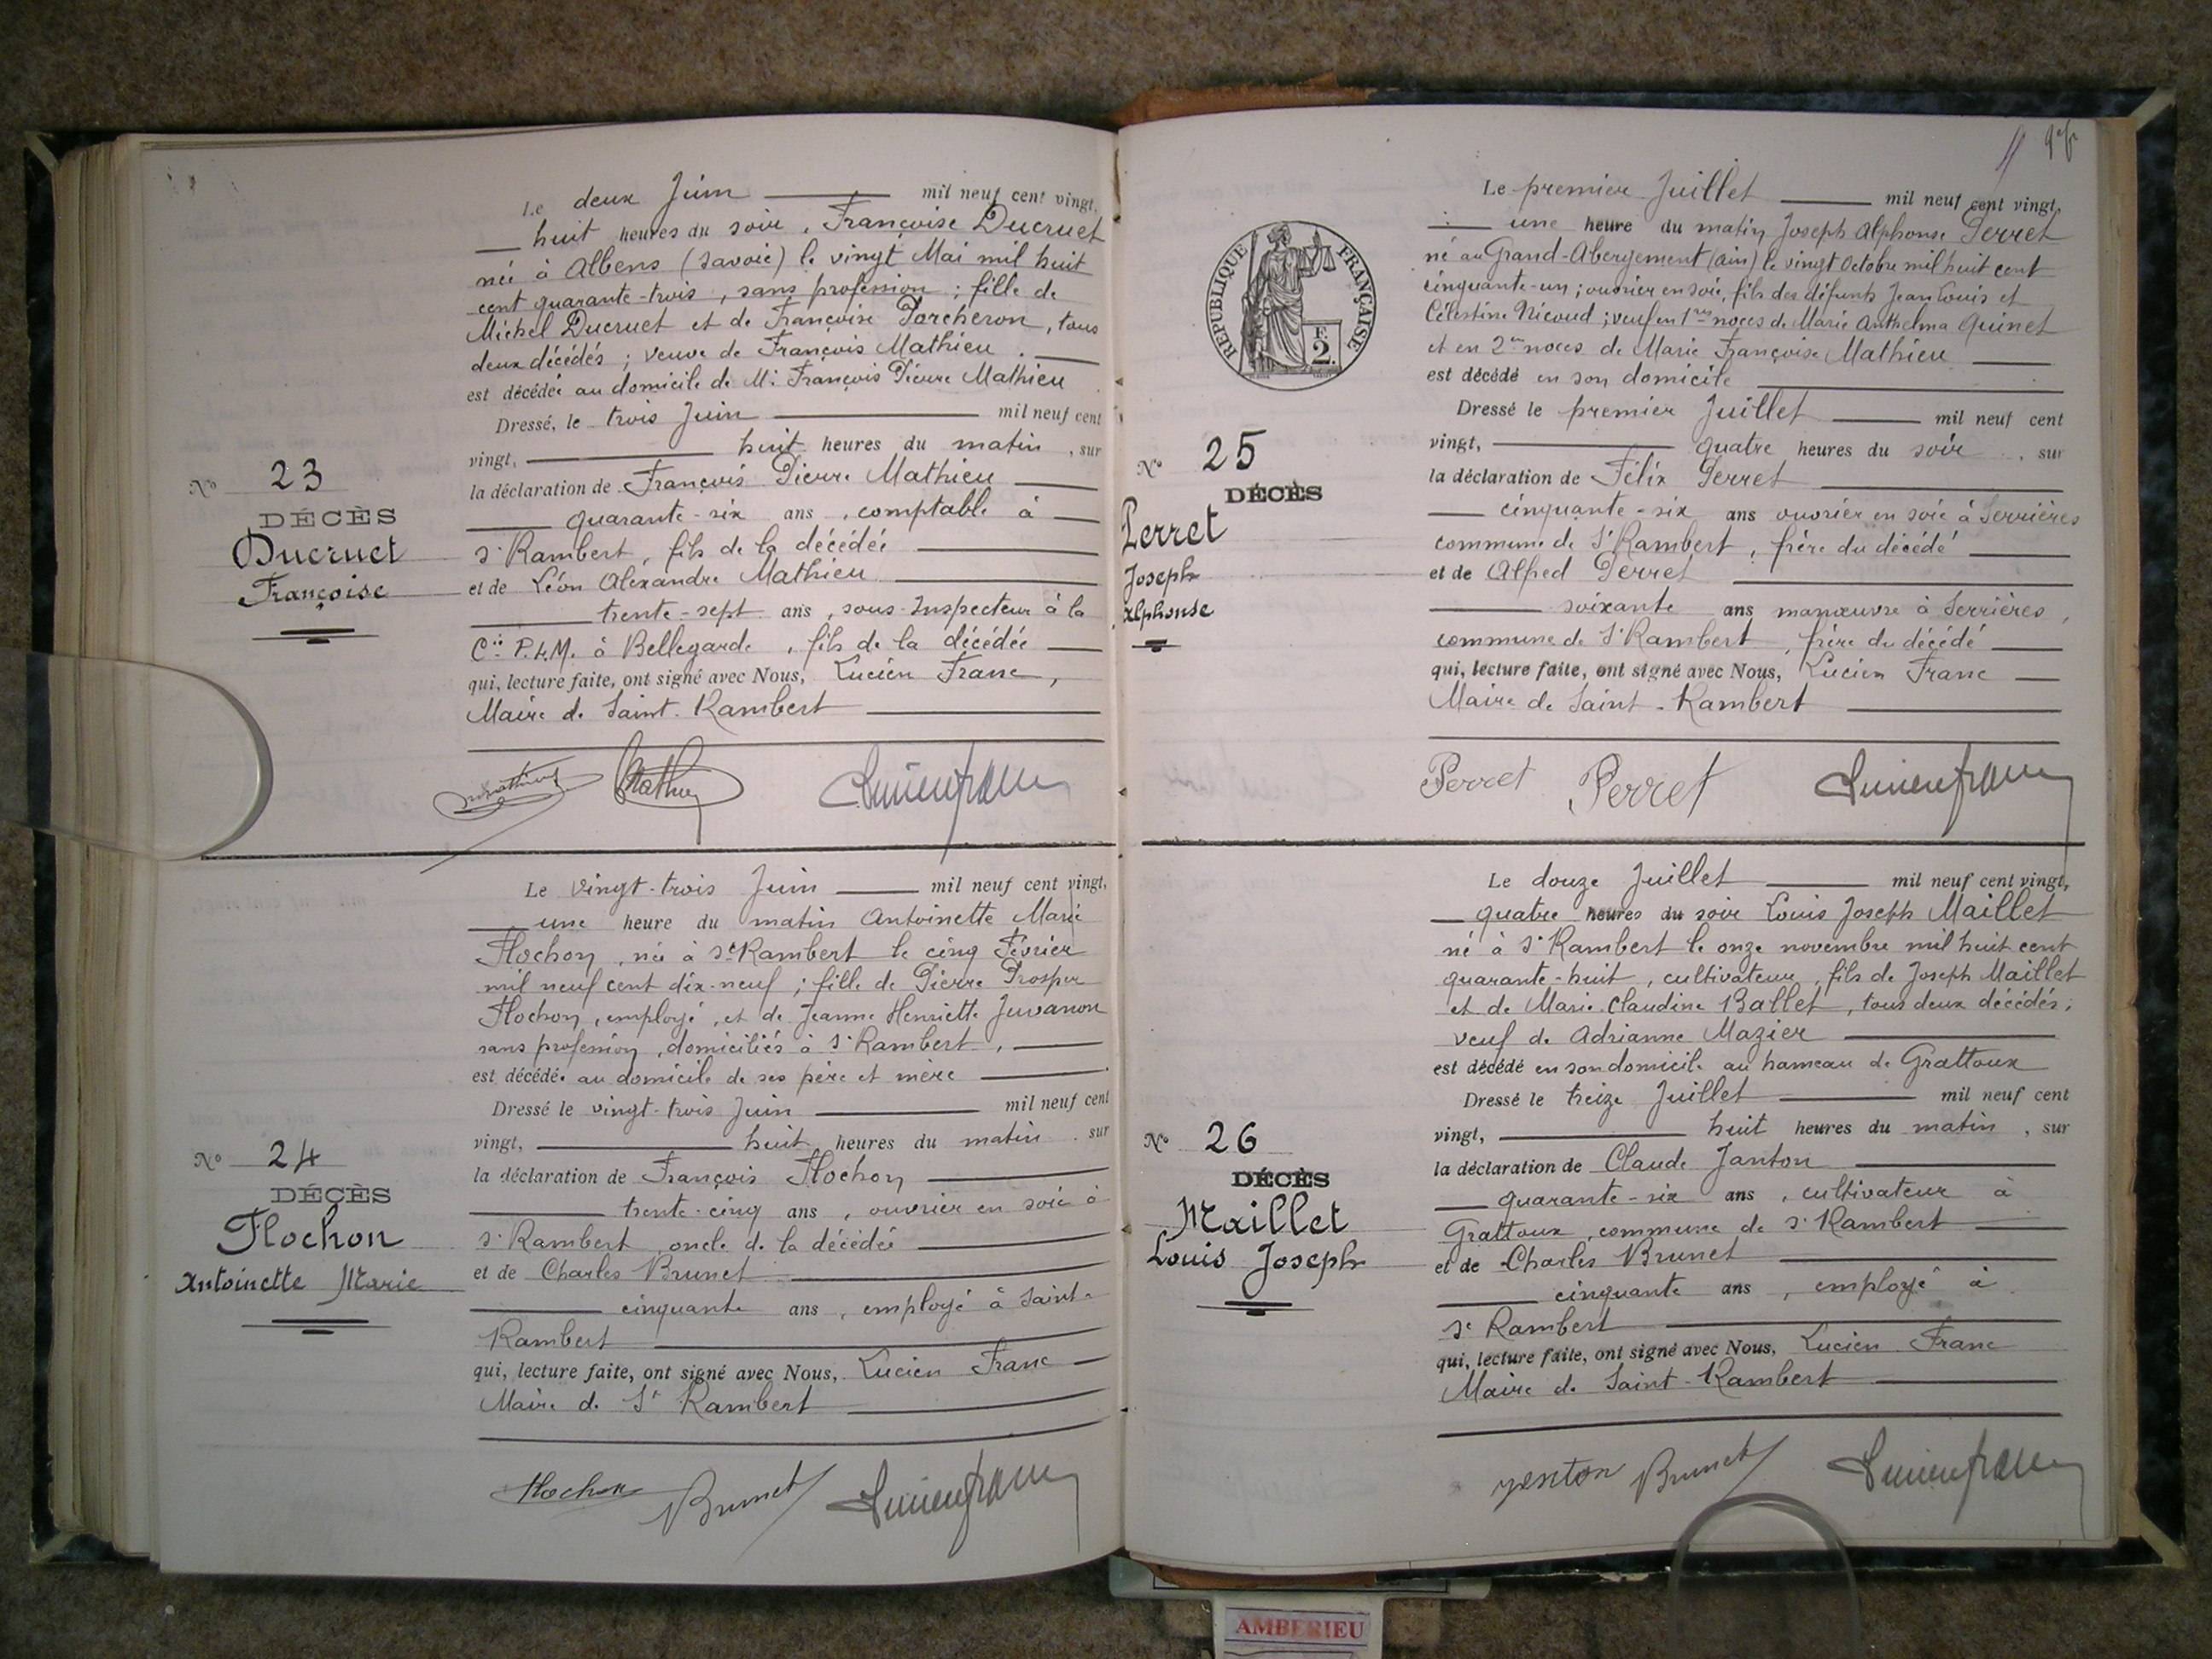 Le deux Juin mil neuf cent vingt,
huit heures du soir, Françoise Ducruet
née à Albens (Savoie) le vingt Mai mil huit
cent quarante-trois, sans profession ; fille de
Michel Ducruet et de Françoise Porcheron, tous
deux décédés ; veuve de François Mathieu
est décédée au domicile de Mr François Pierre Mathieu
Dressé, le trois Juin mil neuf cent
vingt, huit heures du matin, sur
la déclaration de François Pierre Mathieu
quarante-six ans, comptable à
St Rambert, fils de la décédée
et de Léon Alexandre Mathieu
trente-sept ans, sous-Inspecteur à la
Cie P.L.M. à Bellegarde, fils de la décédée
qui, lecture faite, ont signé avec Nous, Lucien Franc,
Maire de Saint-Rambert
No 23
DÉCÈS
Ducruet
Françoise
Mathieu Lucien franc
Le vingt-trois Juin mil neuf cent vingt,
une heure du matin Antoinette Marie
Flochon, née à St Rambert le cinq Février
mil neuf cent dix-neuf ; fille de Pierre Prosper
Flochon, employé, et de Jeanne Henriette Juvanon
sans profession, domiciliés à St Rambert,
est décédée au domicile de ses père et mère
Dressé le vingt-trois Juin mil neuf cent
vingt, huit heures du matin, sur
la déclaration de François Flochon
trente-cinq ans, ouvrier en soie à
St Rambert, oncle de la décédée
et de Charles Brunet
cinquante ans, employé à Saint-
Rambert
qui, lecture faite, ont signé avec Nous, Lucien Franc
Maire de St Rambert
No 24
DÉCÈS
Flochon
Antoinette Marie
Flochon Brunet Lucien franc
Le premier Juillet mil neuf cent vingt,
une heure du matin Joseph Alphonse Perret
né au Grand-Abergement (Ain) le vingt Octobre mil huit cent
cinquante-un ; ouvrier en soie, fils des défunts Jean Louis et
Célestine Nicoud ; veuf en 1res noces de Marie Anthelma Quinet
et en 2es noces de Marie Françoise Mathieu
est décédé en son domicile
Dressé le premier Juillet mil neuf cent
vingt, quatre heures du soir, sur
la déclaration de Félix Perret
cinquante-six ans ouvrier en soie à Serrières
commune de St Rambert, frère du décédé
et de Alfred Perret
soixante ans manœuvre à Serrières,
commune de St Rambert, frère du décédé
qui, lecture faite, ont signé avec Nous, Lucien Franc
Maire de Saint-Rambert
RÉPUBLIQUE FRANÇAISE
F.
2.
No 25
DÉCÈS
Perret
Joseph
Alphonse
Perret Perret Lucien franc
Le douze Juillet mil neuf cent vingt,
quatre heures du soir Louis Joseph Maillet
né à St Rambert le onze novembre mil huit cent
quarante-huit, cultivateur, fils de Joseph Maillet
et de Marie Claudine Ballet, tous deux décédés ;
veuf de Adrianne Mazier
est décédé en son domicile au hameau de Grattoux
Dressé le treize Juillet mil neuf cent
vingt, huit heures du matin, sur
la déclaration de Claude Janton
quarante-six ans, cultivateur à
Grattoux, commune de St Rambert
et de Charles Brunet
cinquante ans, employé à
St Rambert
qui, lecture faite, ont signé avec Nous, Lucien Franc
Maire de Saint-Rambert
No 26
DÉCÈS
Maillet
Louis Joseph
Janton Brunet Lucien franc
AMBERIEU